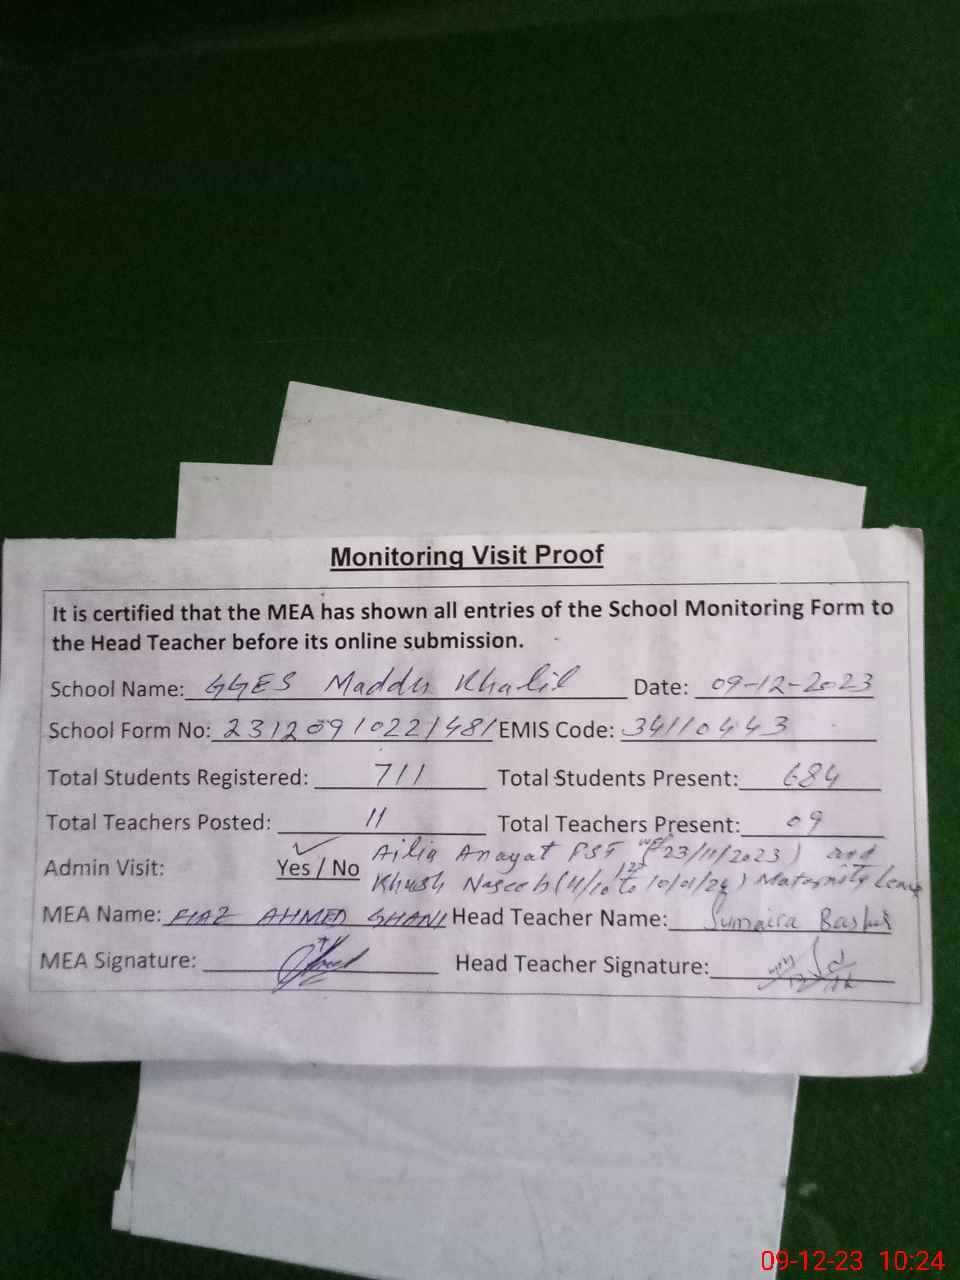 Monitoring Visit Proof
It is certified that the MEA has shown all entries of the School Monitoring Form to
the Head Teacher before its online submission.
School Name: GGES Maddu Khalil Date: 09-12-2023
School Form No: 23120910221481 EMIS Code: 34110443
Total Students Registered: 711 Total Students Present: 684
Total Teachers Posted: 11 Total Teachers Present: 09
Admin Visit: Yes / No Ailia Anayat PST wef (23/11/2023) and
Khush Naseeb (11/10 to 10/01/24) Maternity Leave
MEA Name: FIAZ AHMED GHANI Head Teacher Name: Sumaira Bashir
MEA Signature: Head Teacher Signature:
09-12-23 10:24